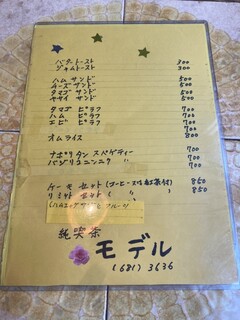 バタートースト 300
ジャムトースト 300
ハム サンド 500
チーズ サンド 500
タマゴ サンド 500
ヤサイ サンド 500
タマゴ ピラフ 700
ハム ピラフ 700
エビ ピラフ 700
オムライス 800
ナポリタン スパゲティー 700
バジリコニンニク 〃 700
ケーキ セット (コーヒー又は紅茶付) 850
セット ( 〃 ) 850
純喫茶
モデル
(681) 3636